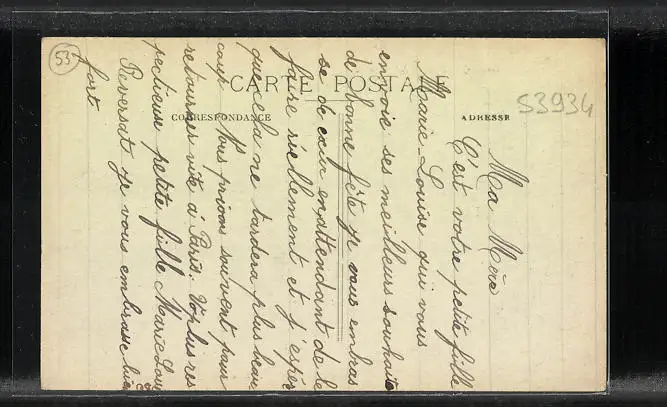 53
CARTE POSTALE
CORRESPONDANCE
ADRESSE
S3934
Ma Mère
C'est votre petite fille
Marie-Louise qui vous
envoie ses meilleurs souhaits
de bonne fête je vous embras
se de cœur en attendant de le
faire réellement et j'espère
que cela ne tardera plus beau
coup. Nous prions souvent pour
retourner vite à Paris. Vos plus res
pectueuse petite fille Marie Loui
Peversat je vous embrasse bien
fort